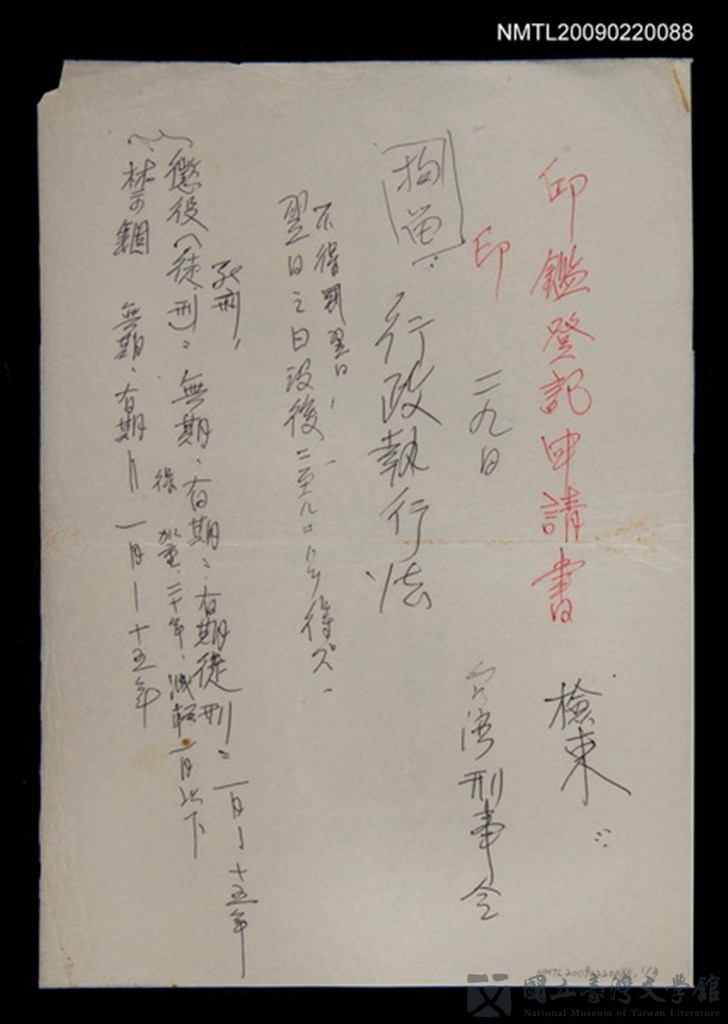 NMTL20090220088
印鑑登記申請書
檢束
印
二九日
台湾刑事令
拘留
行政執行法
不得到翌日,
翌日之日没後二至ルコトヲ得ズ、
死刑,
懲役(徒刑):無期、有期:有期徒刑:一月~十五年
得加重二十年、減輕一月以下
禁錮 無期、有期 一月~十五年
NMTL20090220088, 1/3
國立臺灣文學館
National Museum of Taiwan Literature